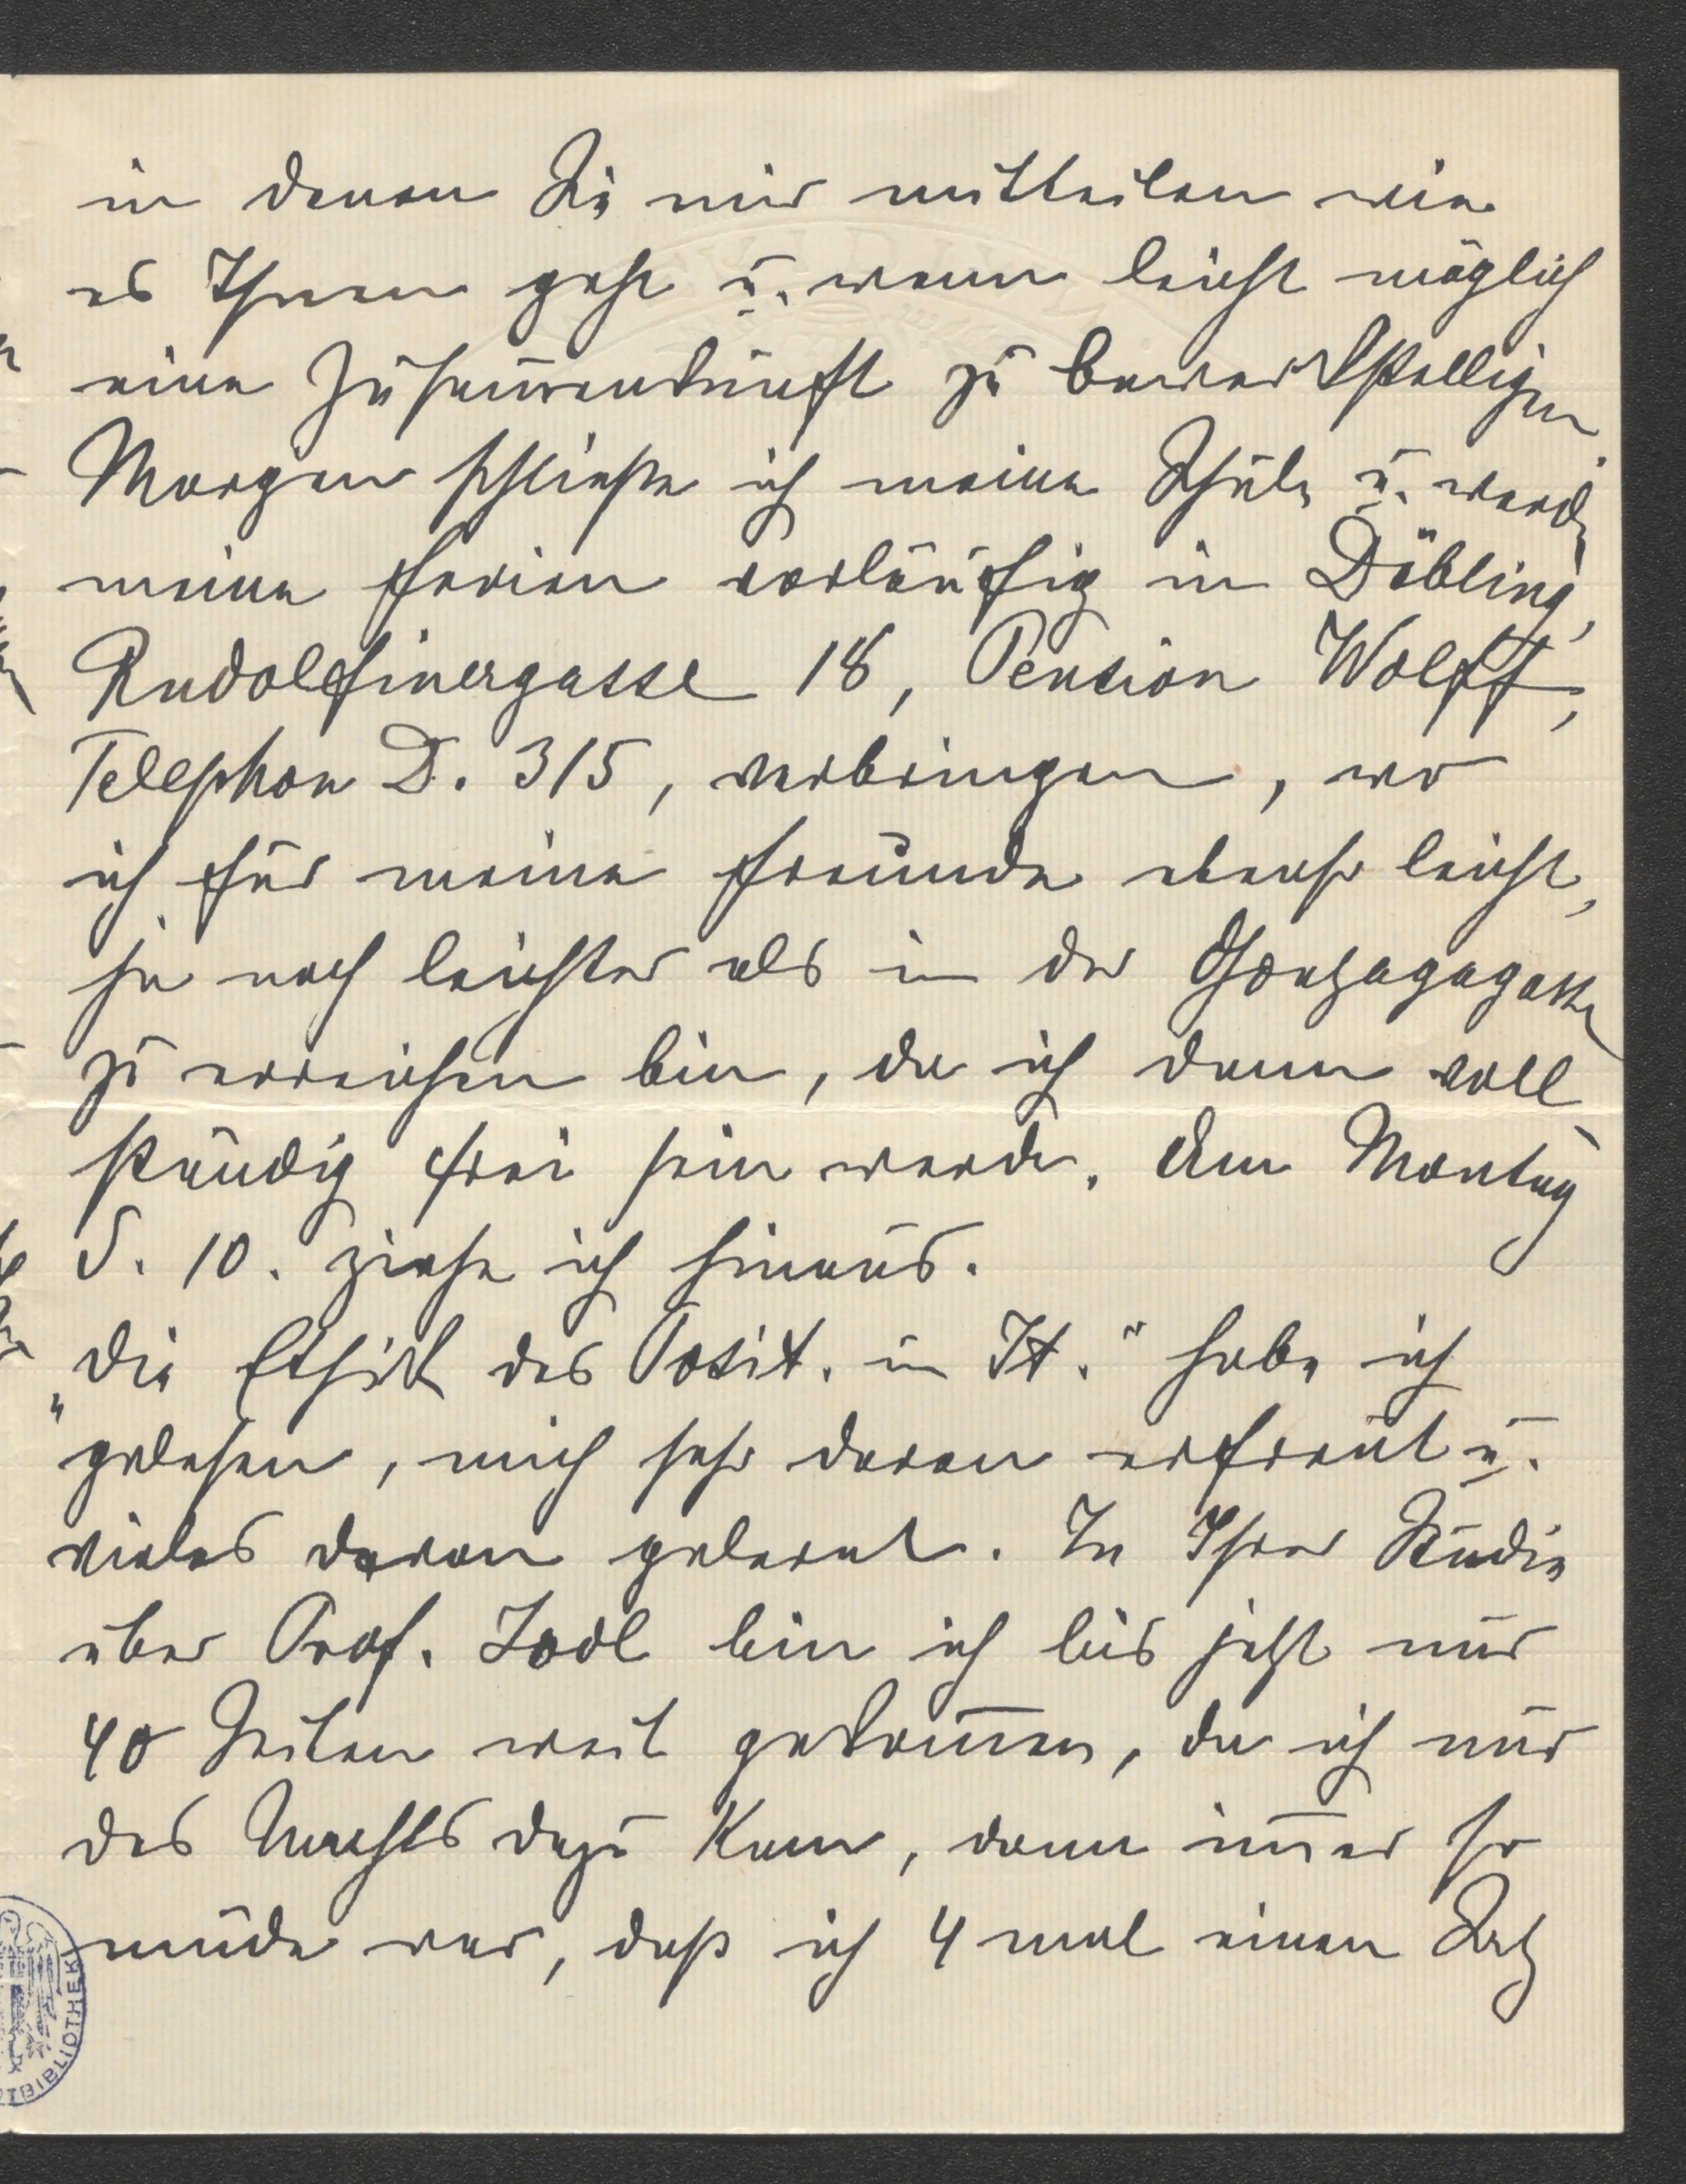 in denen Sie mir mitteilen wie
es Ihnen geht u. wenn leicht möglich
eine Zusam̅enkunft zu bewerkstelligen.
Morgen schließe ich meine Schule u. werde
meine Ferien vorläufig in Döbling,
Rudolfinergasse 18, Pension Wolff,
Telephon D. 315, verbringen, wo
ich für meine Freunde ebenso leicht,
ja noch leichter als in der Gonzagagasse
zu erreichen bin, da ich dann voll
ständig frei sein werde. Am Montag
d. 10. ziehe ich hinaus.
„Die Ethik des Posit. in It." habe ich
gelesen, mich sehr daran erfreut u.
vieles daran gelernt. In Ihrer Studie
über Prof. Jodl bin ich bis jetzt nur
40 Seiten weit gekom̅en, da ich nur
des Nachts dazu kam, dann im̅er so
müde war, daß ich 4 mal einen Satz
BIBLIOTHEK